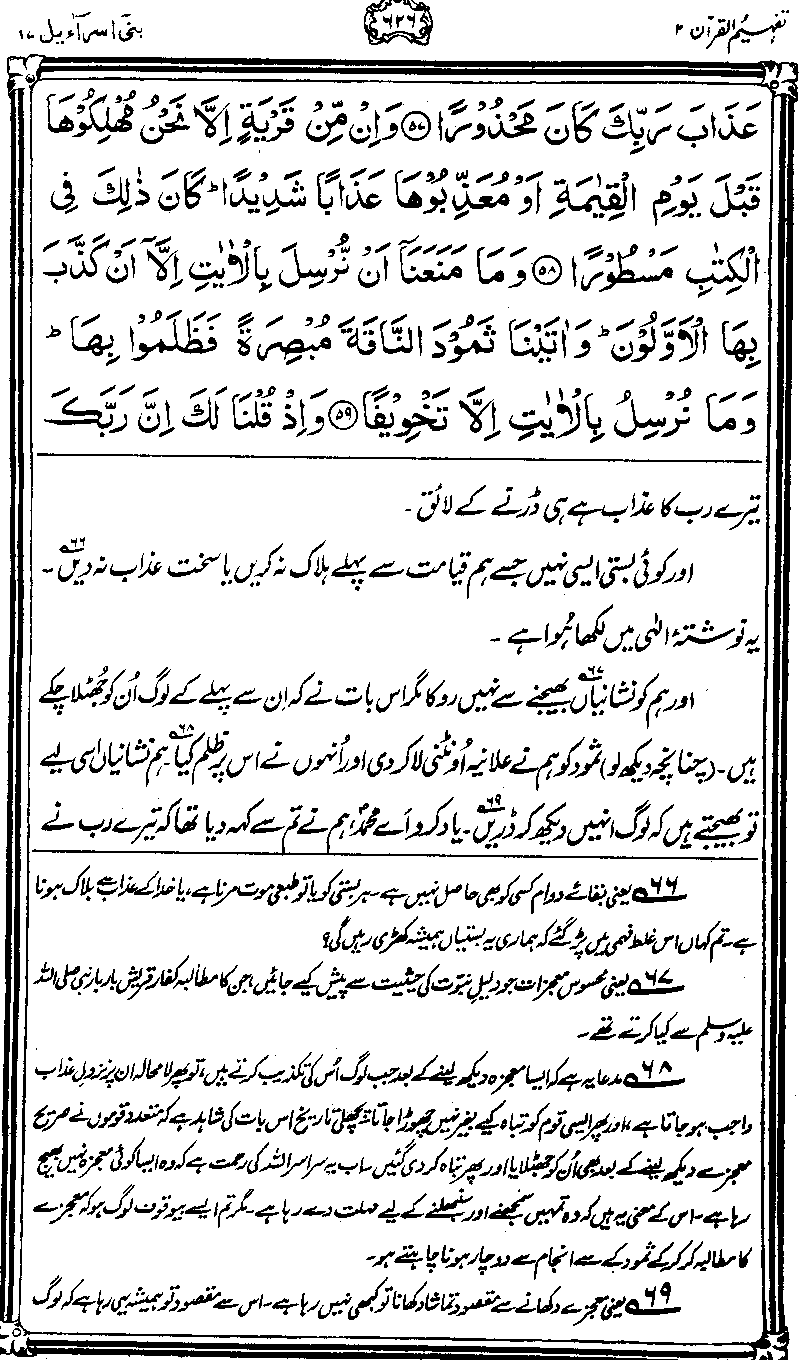 تفہیم القرآن ۲
۶۲۶
بنی اسرآءیل ۱۷
عَذَابَ رَبِّكَ كَانَ مَحْذُوْرًا ﴿۵۷﴾ وَاِنْ مِّنْ قَرْيَةٍ اِلَّا نَحْنُ مُهْلِكُوْهَا
قَبْلَ يَوْمِ الْقِيٰمَةِ اَوْ مُعَذِّبُوْهَا عَذَابًا شَدِيْدًا ؕ كَانَ ذٰلِكَ فِى
الْكِتٰبِ مَسْطُوْرًا ﴿۵۸﴾ وَمَا مَنَعَنَاۤ اَنْ نُّرْسِلَ بِالْاٰيٰتِ اِلَّاۤ اَنْ كَذَّبَ
بِهَا الْاَوَّلُوْنَ ؕ وَاٰتَيْنَا ثَمُوْدَ النَّاقَةَ مُبْصِرَةً فَظَلَمُوْا بِهَا ؕ
وَمَا نُرْسِلُ بِالْاٰيٰتِ اِلَّا تَخْوِيْفًا ﴿۵۹﴾ وَاِذْ قُلْنَا لَكَ اِنَّ رَبَّكَ
تیرے رب کا عذاب ہے ہی ڈرنے کے لائق۔
اور کوئی بستی ایسی نہیں جسے ہم قیامت سے پہلے ہلاک نہ کریں یا سخت عذاب نہ دیں۶۶۔
یہ نوشتۂ الٰہی میں لکھا ہُوا ہے۔
اور ہم کو نشانیاں۶۷ بھیجنے سے نہیں روکا مگر اس بات نے کہ اِن سے پہلے کے لوگ اُن کو جُھٹلا چکے
ہیں۔ (چنانچہ دیکھ لو) ثمود کو ہم نے علانیہ اُونٹنی لا کر دی اور اُنہوں نے اس پر ظلم کیا۶۸۔ ہم نشانیاں اسی لیے
تو بھیجتے ہیں کہ لوگ انہیں دیکھ کر ڈریں۶۹۔ یاد کرو اَے محمدؐ، ہم نے تم سے کہہ دیا تھا کہ تیرے رب نے
۶۶ یعنی بقائے دوام کسی کو بھی حاصل نہیں ہے۔ ہر بستی کو یا تو طبعی موت مرنا ہے، یا خدا کے عذاب سے ہلاک ہونا
ہے۔ تم کہاں اس غلط فہمی میں پڑ گئے کہ ہماری یہ بستیاں ہمیشہ کھڑی رہیں گی؟
۶۷ یعنی محسوس معجزات جو دلیلِ نبوت کی حیثیت سے پیش کیے جائیں، جن کا مطالبہ کفار قریش بار بار نبی صلی اللہ
علیہ وسلم سے کیا کرتے تھے۔
۶۸ مدعا یہ ہے کہ ایسا معجزہ دیکھ لینے کے بعد جب لوگ اُس کی تکذیب کرتے ہیں، تو پھر لامحالہ ان پر نزولِ عذاب
واجب ہو جاتا ہے، اور پھر ایسی قوم کو تباہ کیے بغیر نہیں چھوڑا جاتا۔ پچھلی تاریخ اس بات کی شاہد ہے کہ متعدد قوموں نے صریح
معجزے دیکھ لینے کے بعد بھی اُن کو جھٹلایا اور پھر تباہ کر دی گئیں۔ اب یہ سراسر اللہ کی رحمت ہے کہ وہ ایسا کوئی معجزہ نہیں بھیج
رہا ہے۔ اس کے معنی یہ ہیں کہ وہ تمہیں سمجھنے اور سنبھلنے کے لیے مہلت دے رہا ہے۔ مگر تم ایسے بیوقوف لوگ ہو کہ معجزے
کا مطالبہ کر کر کے ثمود کے سے انجام سے دوچار ہونا چاہتے ہو۔
۶۹ یعنی معجزے دکھانے سے مقصود تماشا دکھانا تو کبھی نہیں رہا ہے۔ اس سے مقصود تو ہمیشہ یہی رہا ہے کہ لوگ